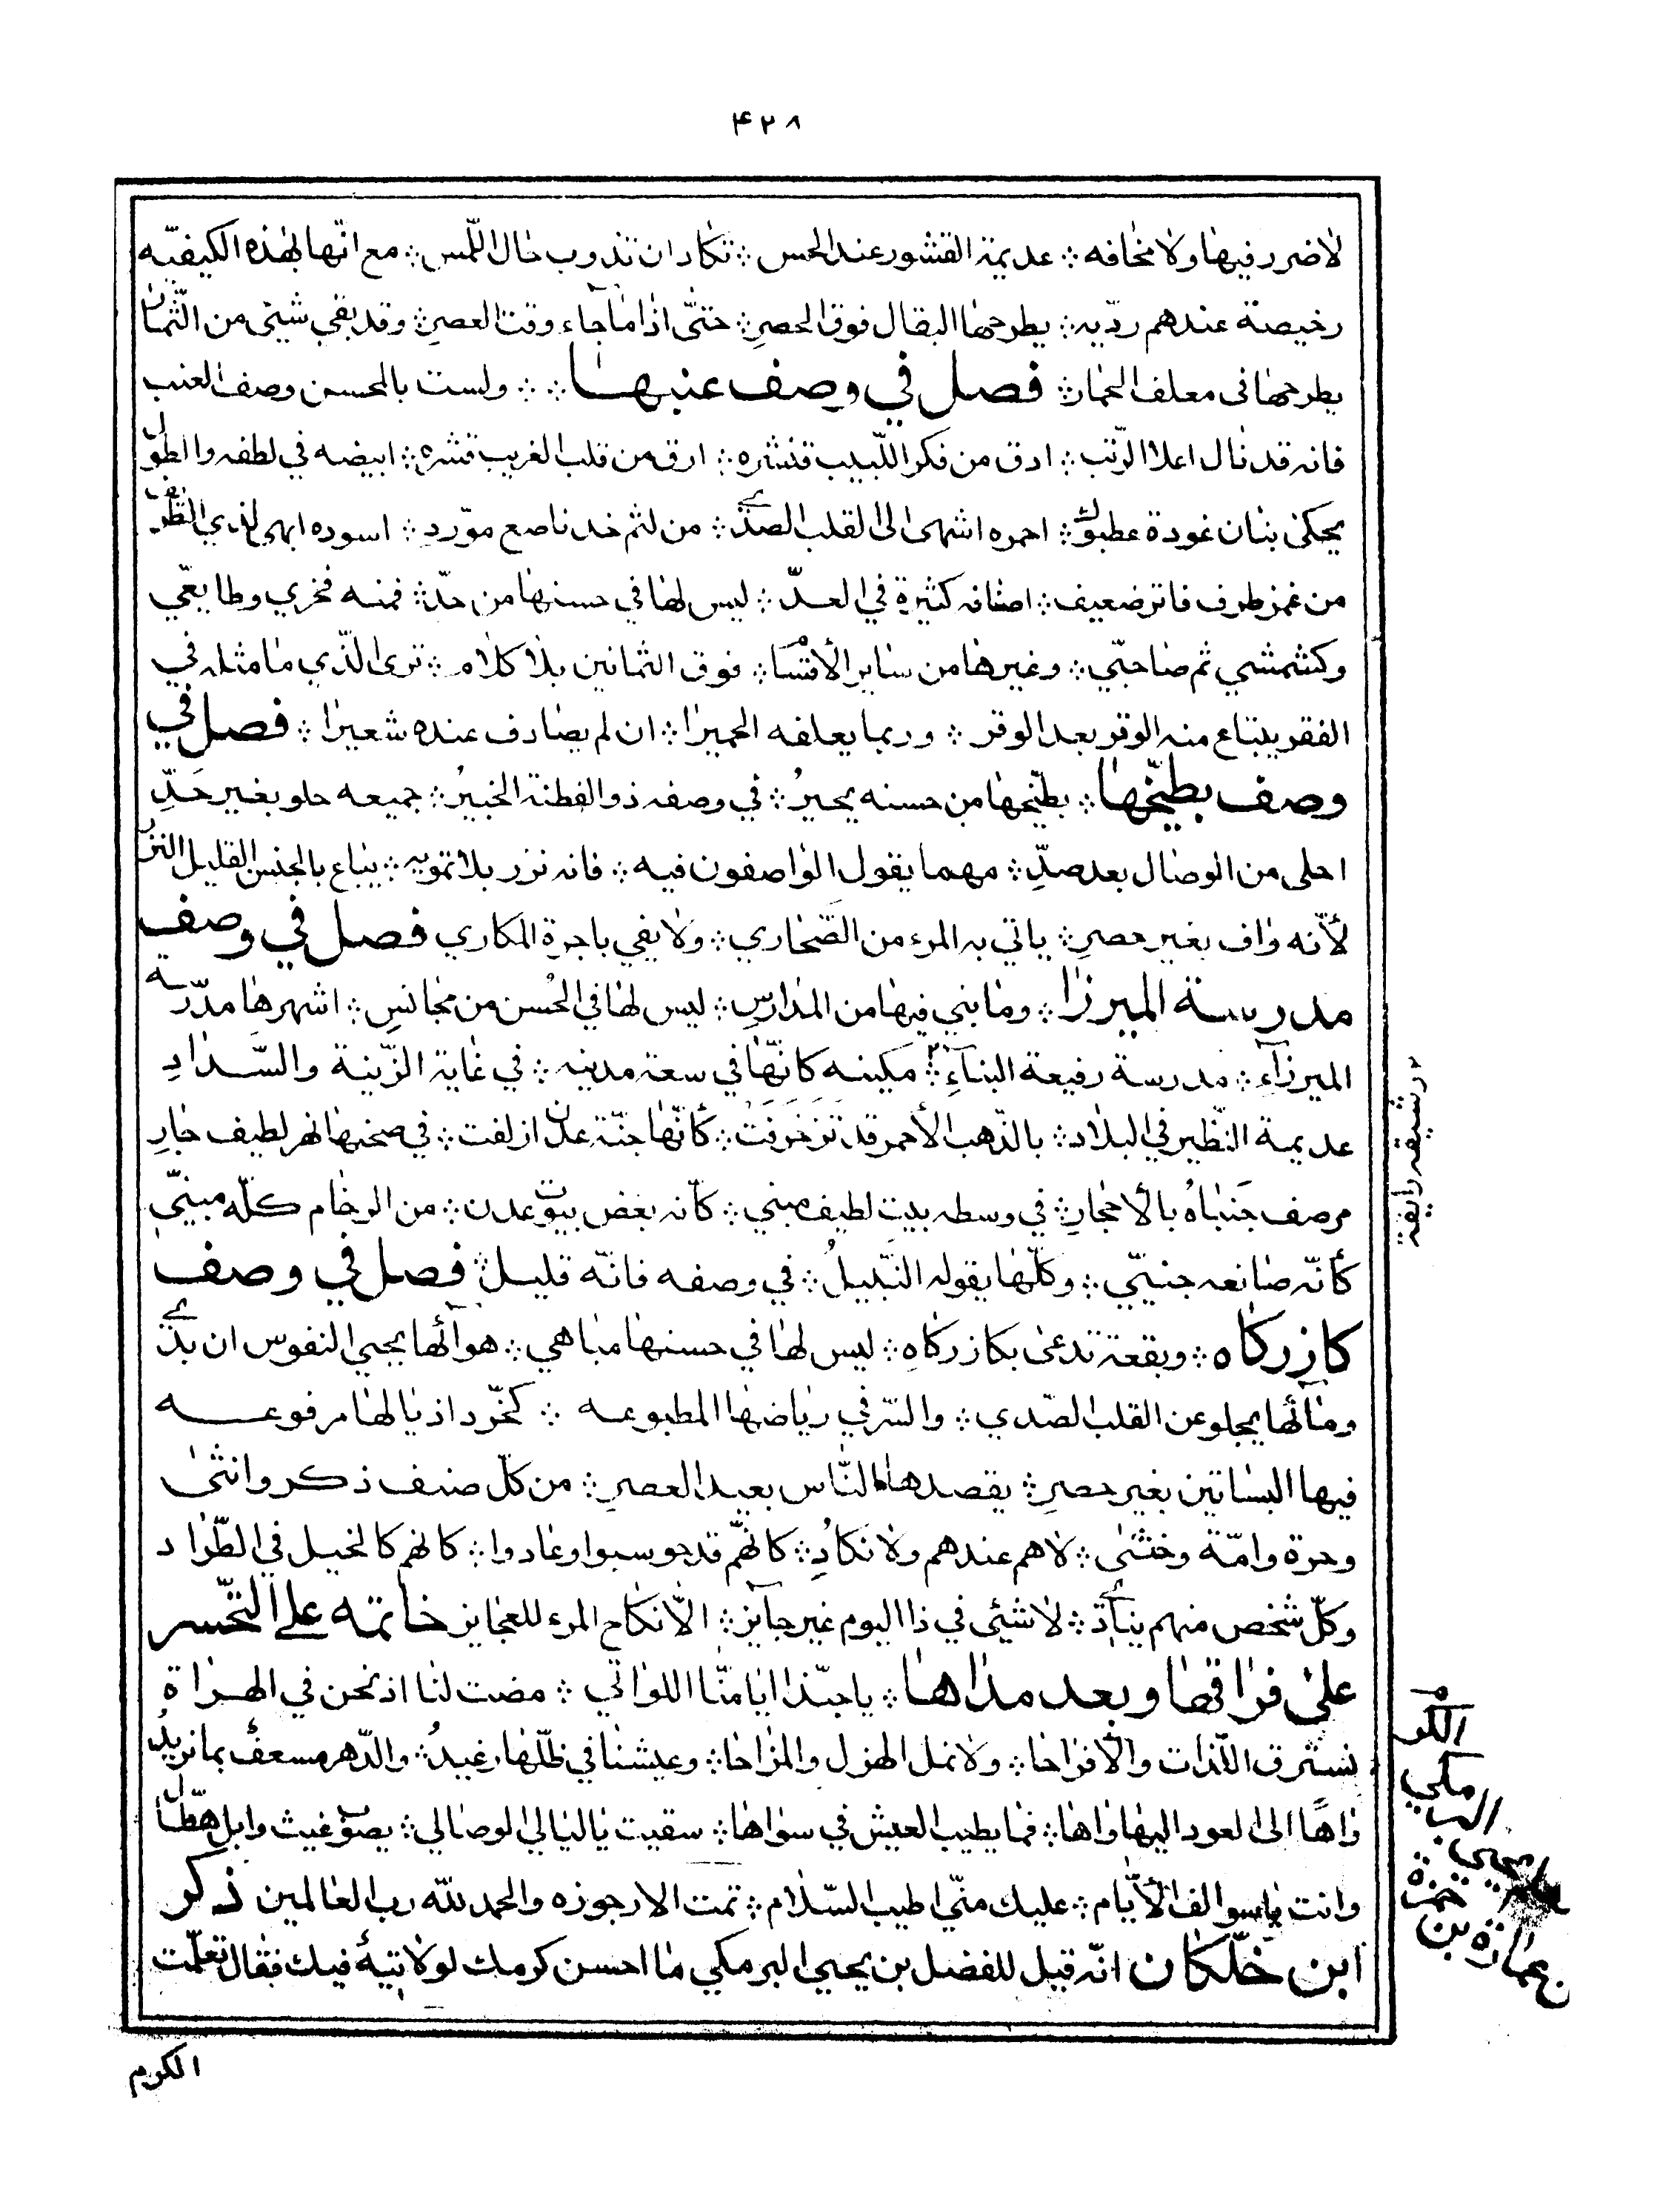 ۴۲۸
لا ضرر فيها ولا مخافه ؞ عديمة القشور عند الحس ؞ تكاد ان تذوب حال اللّمس ؞ مع انّها بهذه الكيفيّه
رخيصة عندهم رديّه ؞ يطرحها البقال فوق الحصرِ ؞ حتّى اذا ما جاء وقت العصرِ ؞ وقد بقي شيئ من الثّمار
يطرحها في معلف الحمار ؞ فصل في وصف عنبها ؞ ؞ ولست بالمحسن وصف العنب
فانه قد نال اعلا الرّتب ؞ ادق من فكر اللّبيب قشره ؞ ارق من قلب الغريب قشره ؞ ابيضه في لطفه والطّول
يحكى بنان غودة عطبول ؞ احمره اشهى الى القلب الصدّي ؞ من لثم خد ناصع مورّدِ ؞ اسوده ابهى لذي الظّرف
من غمز طرف فاتر ضعيف ؞ اصنافه كثيرة في العدّ ؞ ليس لها في حسنها من حدّ ؞ فمنه فخري وطايفّي
وكشمشي ثم صاحبّي ؞ وغيرها من ساير الأقسام ؞ فوق الثمانين بلا كلام ؞ ترى الّذي ما مثله في
الفقر يبتاع منه الوقر بعد الوقر ؞ وربما يعلفه الحميرا ؞ ان لم يصادف عنده شعيرا ؞ فصل في
وصف بطيّخها ؞ بطّيخها من حسنه يحيرُ ؞ في وصفه ذو الفطنة الخبيرُ ؞ جميعه حلو بغير حَدِّ
احلى من الوصال بعد صدِّ ؞ مهما يقول الواصفون فيه ؞ فانه نزر بلا تمويه ؞ يباع بالجنس القليل النّزر
لأنّه واف بغير حصرِ ؞ ياتي به المرء من الصّحاري ؞ ولا يفي باجرة المكاري فصل في وصف
مدرسة الميرزا ؞ وما بني فيها من المدارسِ ؞ ليس لها في الحُسن من مجانسِ ؞ اشهرها مدرّسة
الميرزآء ؞ مدرسة رفيعة البنآءِ ؞ مكينه كانّها في سعة مدينه ؞ في غاية الزّينة والسَّدادِ
عديمة النّظير في البلاد ؞ بالذّهب الأحمر قد تزخرفت ؞ كأنّها جنّة عدن ازلفت ؞ في صحنها نهر لطيف جارِ
مرصف جَنباهُ بالأحجارِ ؞ في وسطه بيت لطيف مبني ؞ كانّه بعض بيوت عدن ؞ من الرخام كلّه مبنيّ
كأنّه صانعه جنيّي ؞ وكلّها يقوله النّبيلُ ؞ في وصفه فانّه قليلُ ؞ فصل في وصف
كازركاه ؞ وبقعة تدعى بكازركاهِ ؞ ليس لها في حسنها مباهي ؞ هوآئها يحيي النفوس ان بدّي
ومآئها يجلو عن القلب الصّدي ؞ والسّر في رياضها المطبوعه ؞ كخّرد اذيالها مرفوعه
فيها البساتين بغير حصرِ ؞ يقصدها النّاس بعيد العصرِ ؞ من كلّ صنف ذكر وانثى
وحرة وامّة وخنثى ؞ لا هم عندهم ولا نكادُ ؞ كانهّم قد حوسبوا وعادوا ؞ كانهم كالخيل في الطّراد
وكلّ شخص منهم ينآدّي ؞ لا شيئ في ذا اليوم غير جآيز ؞ الّا نكاح المرء للعجايز خاتمه على التّحّسر
على فراقها وبعد مداها ؞ يا حبّذا ايامنّا اللواتي ؞ مضت لنا اذ نحن في الهراة
نسترق اللّذات والأفراحا ؞ ولا نمل الهزل والمزاحا ؞ وعيشنا في ظلّها رغيدُ ؞ والدّهر مسعفُ بما نريدُ
واهًا الى العود اليها واها ؞ فما يطيب العيش في سواها ؞ سقيت يا ليالي الوصالي ؞ بصوّب غيث وابل هطّال
وانت يا سوالف الأيّام ؞ عليك منّي اطيب السّلام ؞ تمت الارجوزه والحمد لله رب العالمين ذكر
ابن خلّكان انّه قيل للفضل بن يحيى البرمكي ما احسن كرمك لولا تيهٌ فيك فقال تعلّمت
الكرم
رشيقه رايقة
الكرم
البرمكي
من يحيى
عمارة بن حمزة